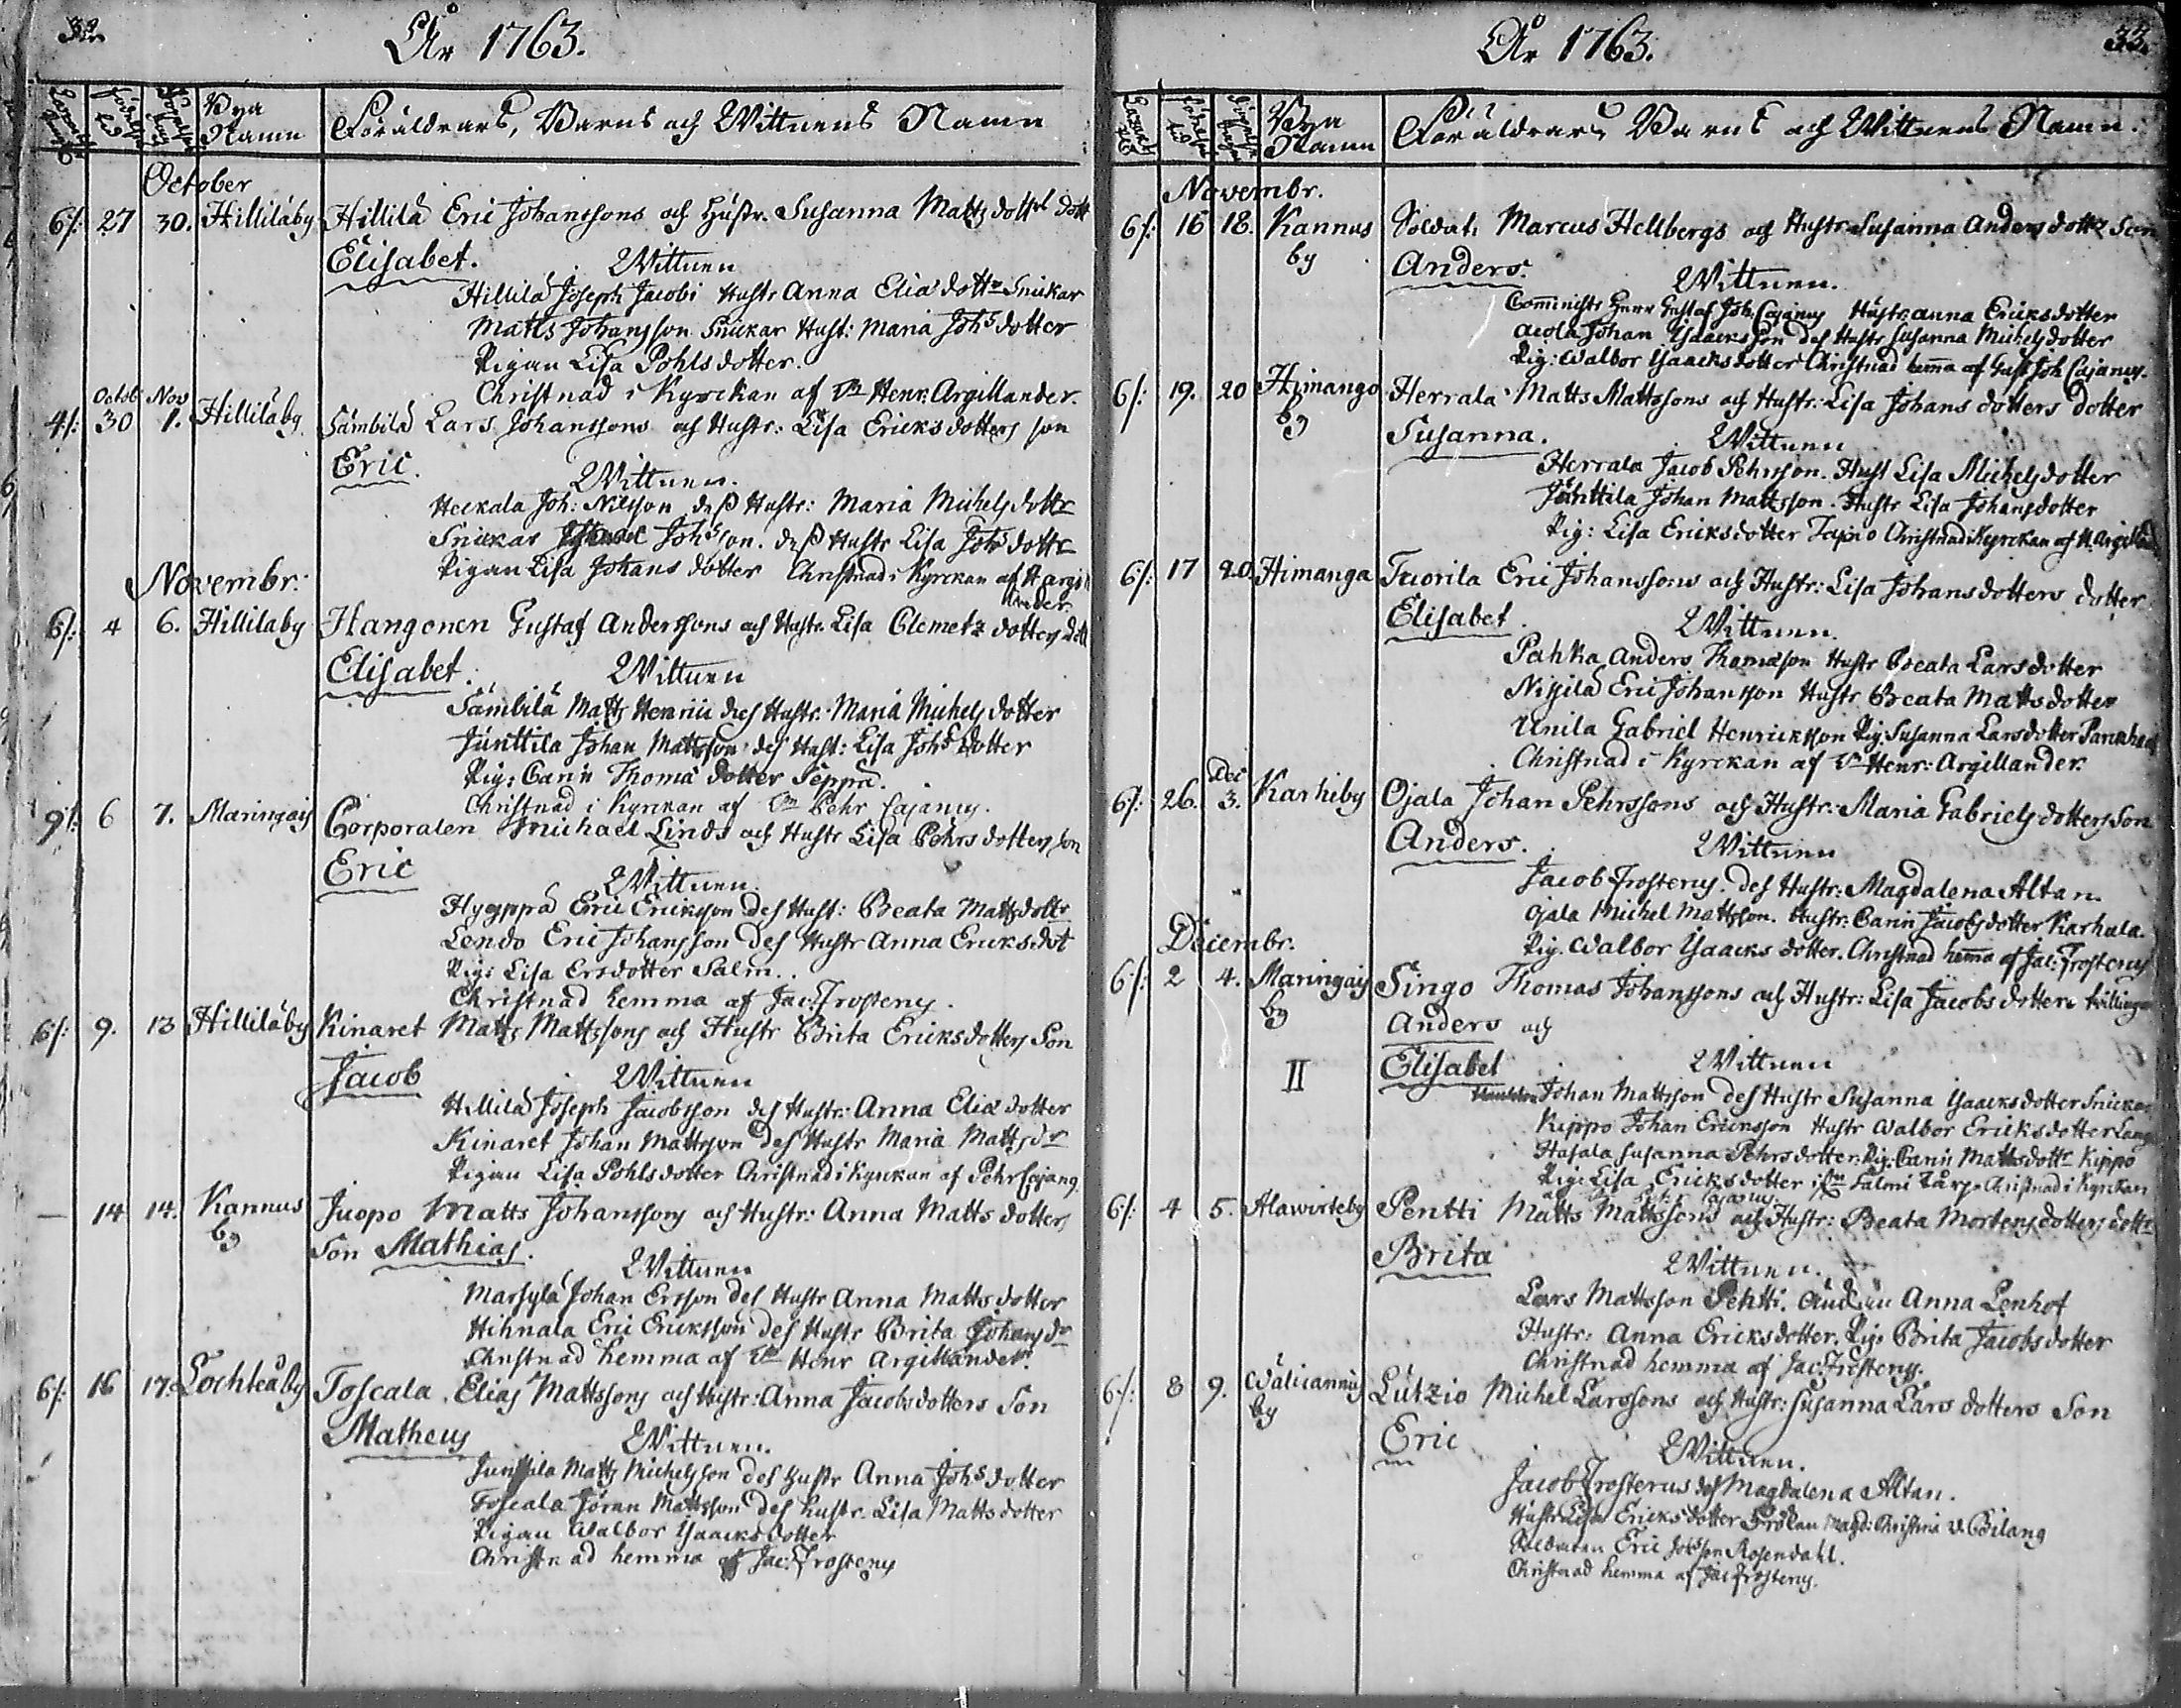 32.
År 1763.
Bya Namn
Föräldrars, Barns och Wittnens Namn
October
6/: 27 30. Hilliläby Hillilä Eric Johanssons och Hustr. Susanna Mattsdottrs dott
Elisabet. Wittnen
Hillilä Joseph Jacobi Hustr Anna Elia dottr Snickar
Matts Johansson Snickar Hust: Maria Johs dotter
Pigan Lisa Pohlsdotter.
Christnad i Kyrckan af Henr: Argillander.
Octob Nov
4/: 30 1. Hilliläby Sämbilä Lars Johanssons och Hustr: Lisa Ericksdotters son
Eric. Wittnen.
Heickala Joh: Nilsson dess Hustr: Maria Michels dottr
Snickar Johsson. dess Hustr Lisa Johs dottr
Pigan Lisa Johans dotter Christnad i Kyrckan af H Argil
lander.
Novembr:
6/: 4 6. Hilliläby Hangonen Gustaf Anderssons och Hustr. Lisa Clemetz dotters dott
Elisabet. Wittnen
Sämbilä Matts Henrici des Hustr. Maria Michels dotter
Junttila Johan Mattsson des Hust: Lisa Johs dotter
Pig: Carin Thoma dotter Seppä.
Christnad i Kyrckan af Pehr Cajanus.
9/: 6 7. Maringais Corporalen Michael Linds och Hustr Lisa Pehrs dotters son
Eric Wittnen.
Hyyppä Eric Ericksson des Hust: Beata Mattsdottr
Lendo Eric Johansson des Hustr Anna Ericksdot
Pig: Lisa Ersdotter Salm.
Christnad hemma af Jac: Frosterus.
6/: 9. 13 Hilliläby Kinaret Matts Mattssons och Hustr Brita Ericksdotters Son
Jacob Wittnen
Hillilä Joseph Jacobsson des Hustr: Anna Elia dotter
Kinaret Johan Mattsson des Hustr Maria Matts dr
Pigan Lisa Pohlsdotter Christnad i Kyrckan af Pehr Cajanus
— 14 14. Kannus by Juopo Matts Johanssons och Hustr: Anna Matts dotters
Son Mathias. Wittnen
Marsylä Johan Ersson des Hustr Anna Matts dotter
Hihnala Eric Ericksson des Hustr Brita Johans dr
Christnad hemma af Henr Argillander.
6/: 16 17. Lochteåby Toscala Elias Mattssons och Hustr: Anna Jacobsdotters Son
Matheus Wittnen.
Junttila Matts Michelsson des Hustr Anna Johs dotter
Toscala Jöran Mattsson des hustr. Lisa Mattsdotter
Pigan Walbor Ysaacksdotter
Christnad hemma af Jac: Frosterus
33.
År 1763.
Bya Namn
Föräldrars Barns och Wittnens Namn.
Novembr.
6/: 16 18. Kannus by Soldat: Marcus Hellbergs och Hustr. Susanna Anders dottrs Son
Anders. Wittnen.
Comministr Herr Gustaf Joh. Cajanus Hustr: Anna Ericksdotter
Johan Ysaacksson des Hustr Susanna Michelsdotter
Pig: Walbor Ysaacksdotter Christnad hemma af Gust Joh Cajanus.
6/: 19. 20 Himango by Herrala Matts Mattssons och Hustr: Lisa Johans dotters dotter
Susanna. Wittnen
Herrala Jacob Pehrsson. Hust Lisa Michelsdotter
Junttila Johan Mattsson. Hustr Lisa Johansdotter
Pig: Lisa Ericksdotter Tapio Christnad i Kyrckan af H. Argilland
6/: 17 20. Himanga Tuorila Eric Johanssons och Hustr: Lisa Johansdotters dotter
Elisabet. Wittnen.
Pahka Anders Thomasson Hustr Beata Larsdotter
Nissilä Eric Johansson Hustr Beata Mattsdotter
Unila Gabriel Henricksson Pig: Susanna Larsdotter
Christnad i Kyrckan af Henr: Argillander.
Dec
6/: 26. 3. Karhiby Ojala Johan Pehrssons och Hustr: Maria Gabriels dotters Son
Anders. Wittnen
Jacob Frosterus. des Hustr: Magdalena Altan.
Ojala Michel Mattsson. Hustr: Carin Jacobsdotter Karhula.
Pig. Walbor Ysaacks dotter. Christnad hemma af Jac: Frosterus
Decembr.
6/: 2 4. Maringais by Singo Thomas Johanssons och Hustr: Lisa Jacobs dotters tvillingar
Anders och
II Elisabet Wittnen
Johan Mattsson des Hustr Susanna Ysaacksdotter Snickar
Kippo Johan Ericksson Hustr Walbor Ericksdotter
Susanna Pehrsdotter. Pig: Carin Mattsdottr Kippo
Pig: Lisa Ericksdotter Salmi Christnad i Kyrckan
af Pehr Cajanus.
6/: 4 5. Alawirteby Pentti Matts Mattssons och Hustr: Beata Mortens dotters dottr
Brita Wittnen.
Lars Mattsson Pentti. Anna Lenhof
Hustr: Anna Ericksdotter. Pig: Brita Jacobsdotter
Christnad hemma af Jac: Frosterus.
6/: 8 9. Wälicannus by Lutzio Michel Larssons och Hustr: Susanna Lars dotters Son
Eric Wittnen.
Jacob Frosterus des Magdalena Altan.
Hustr Lisa Ericksdotter Fröken Magd: Christina v.
Eric Johsson Rosendahl.
Christnad hemma af Jac Frosterus.